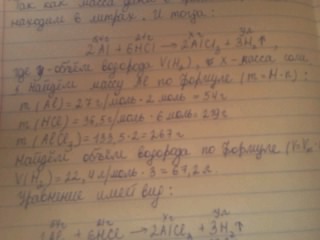 Так как масса дана в
находим в литрах. И тогда:
xг yл
2Al + 6HCl → 2AlCl₃ + 3H₂↑,
где y-объём водорода V(H₂), x-масса соли
Найдём массу Al по формуле (m=M·n):
m(Al) = 27 г/моль · 2 моль = 54 г
m(HCl) = 36,5 г/моль · 6 моль = 219 г
m(AlCl₃) = 133,5 · 2 = 267 г
Найдём объём водорода по формуле
V(H₂) = 22,4 г/моль · 3 = 67,2 л.
Уравнение имеет вид:
xг yл
+ 6HCl → 2AlCl₃ + 3H₂